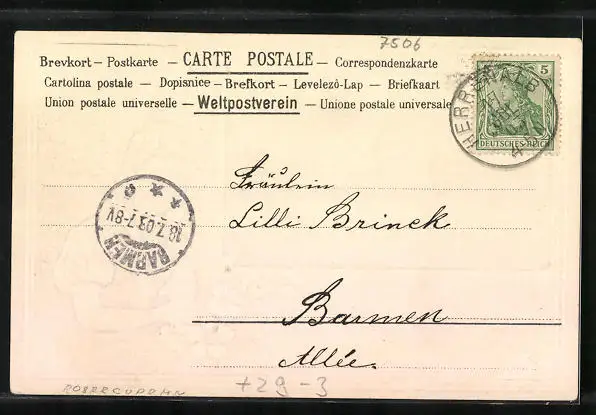 7506
Brevkort – Postkarte – CARTE POSTALE – Correspondenzkarte
Cartolina postale – Dopisnice – Brefkort – Levelező-Lap – Briefkaart
Union postale universelle – Weltpostverein – Unione postale universale
5
DEUTSCHES REICH
HERRENALB
Fräulein
Lilli Brinck
BARMEN
Barmen
Allée.
+29-3